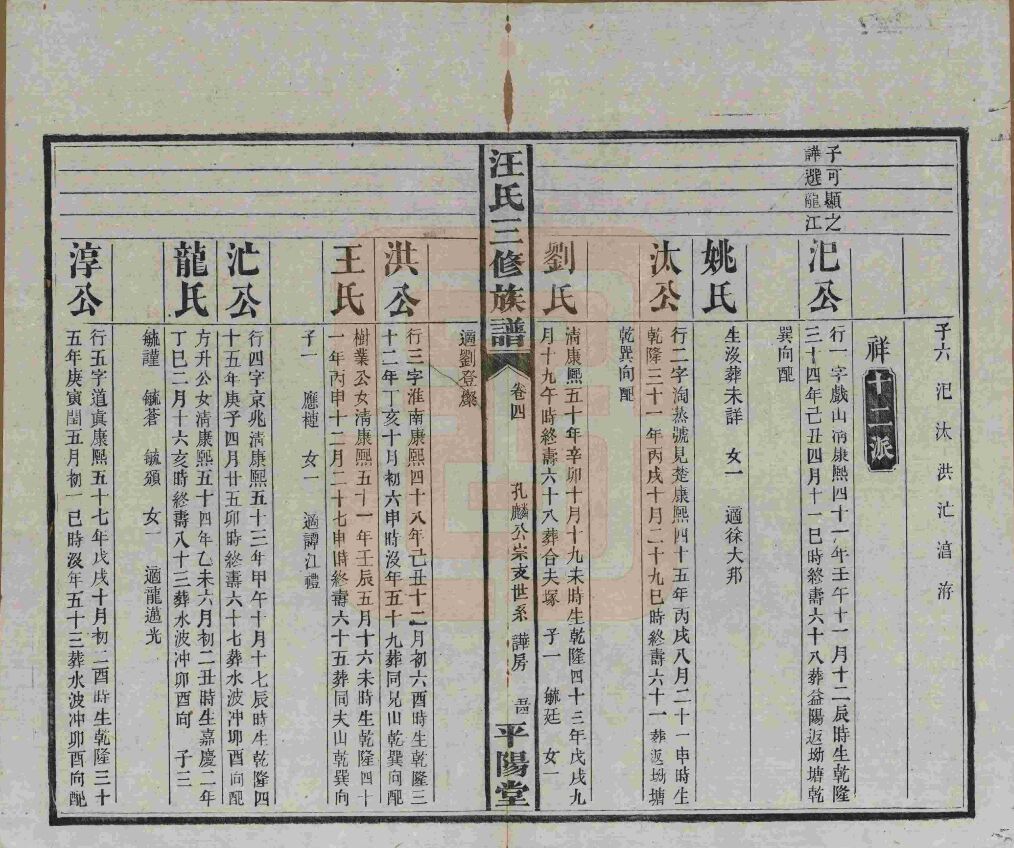 子六 汜 汰 洪 𣲙 淐 㳺
祥十二派
子可顯之
譁選龍江
汜公
行一字戲山淸康熙四十一年壬午十一月十二辰時生乾隆
三十四年己丑四月十一巳時終壽六十八葬益陽返坳塘乾
巽向配
姚氏
生沒葬未詳 女一 適徐大邦
汰公
行二字淘蒸號見楚康熙四十五年丙戌八月二十一申時生
乾隆三十一年丙戌十月二十九巳時終壽六十一葬返坳塘
乾巽向配
劉氏
淸康熙五十年辛卯十月十九未時生乾隆四十三年戊戌九
月十九午時終壽六十八葬合夫塚 子一 毓廷 女一
汪氏三修族譜
卷四
孔麟公宗支世系 譁房
平陽堂
適劉登粲
洪公
行三字淮南康熙四十八年己丑十二月初六酉時生乾隆三
十二年丁亥十月初六申時沒年五十九葬同見山乾巽向配
王氏
樹業公女淸康熙五十一年壬辰五月十六未時生乾隆四十
一年丙申十二月二十七申時終壽六十五葬同夫山乾巽向
子一 應槤 女一 適譚江禮
𣲙公
行四字京兆淸康熙五十三年甲午十月十七辰時生乾隆四
十五年庚子四月廿五卯時終壽六十七葬水波冲卯酉向配
龍氏
方升公女淸康熙五十四年乙未六月初二丑時生嘉慶二年
丁巳二月十六亥時終壽八十三葬水波冲卯酉向 子三
毓謹 毓蒼 毓頟 女一 適龍邁光
淳公
行五字道眞康熙五十七年戊戌十月初二酉時生乾隆三十
五年庚寅閏五月初一巳時沒年五十三葬水波冲卯酉向配